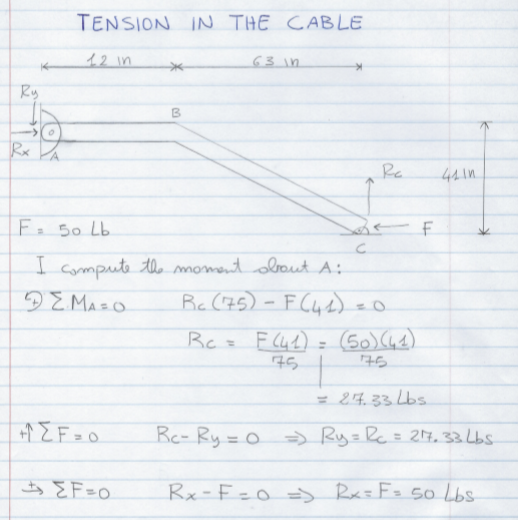 TENSION IN THE CABLE
12 in 63 in
Ry
B
Rx A
Rc 41 in
F = 50 Lb
F
C
I compute the moment about A:
↺+ ΣMA=0 Rc(75) - F(41) = 0
Rc = F(41)/75 = (50)(41)/75
= 27.33 Lbs
+↑ ΣF=0 Rc-Ry=0 ⇒ Ry=Rc=27.33 Lbs
+→ ΣF=0 Rx-F=0 ⇒ Rx=F=50 Lbs